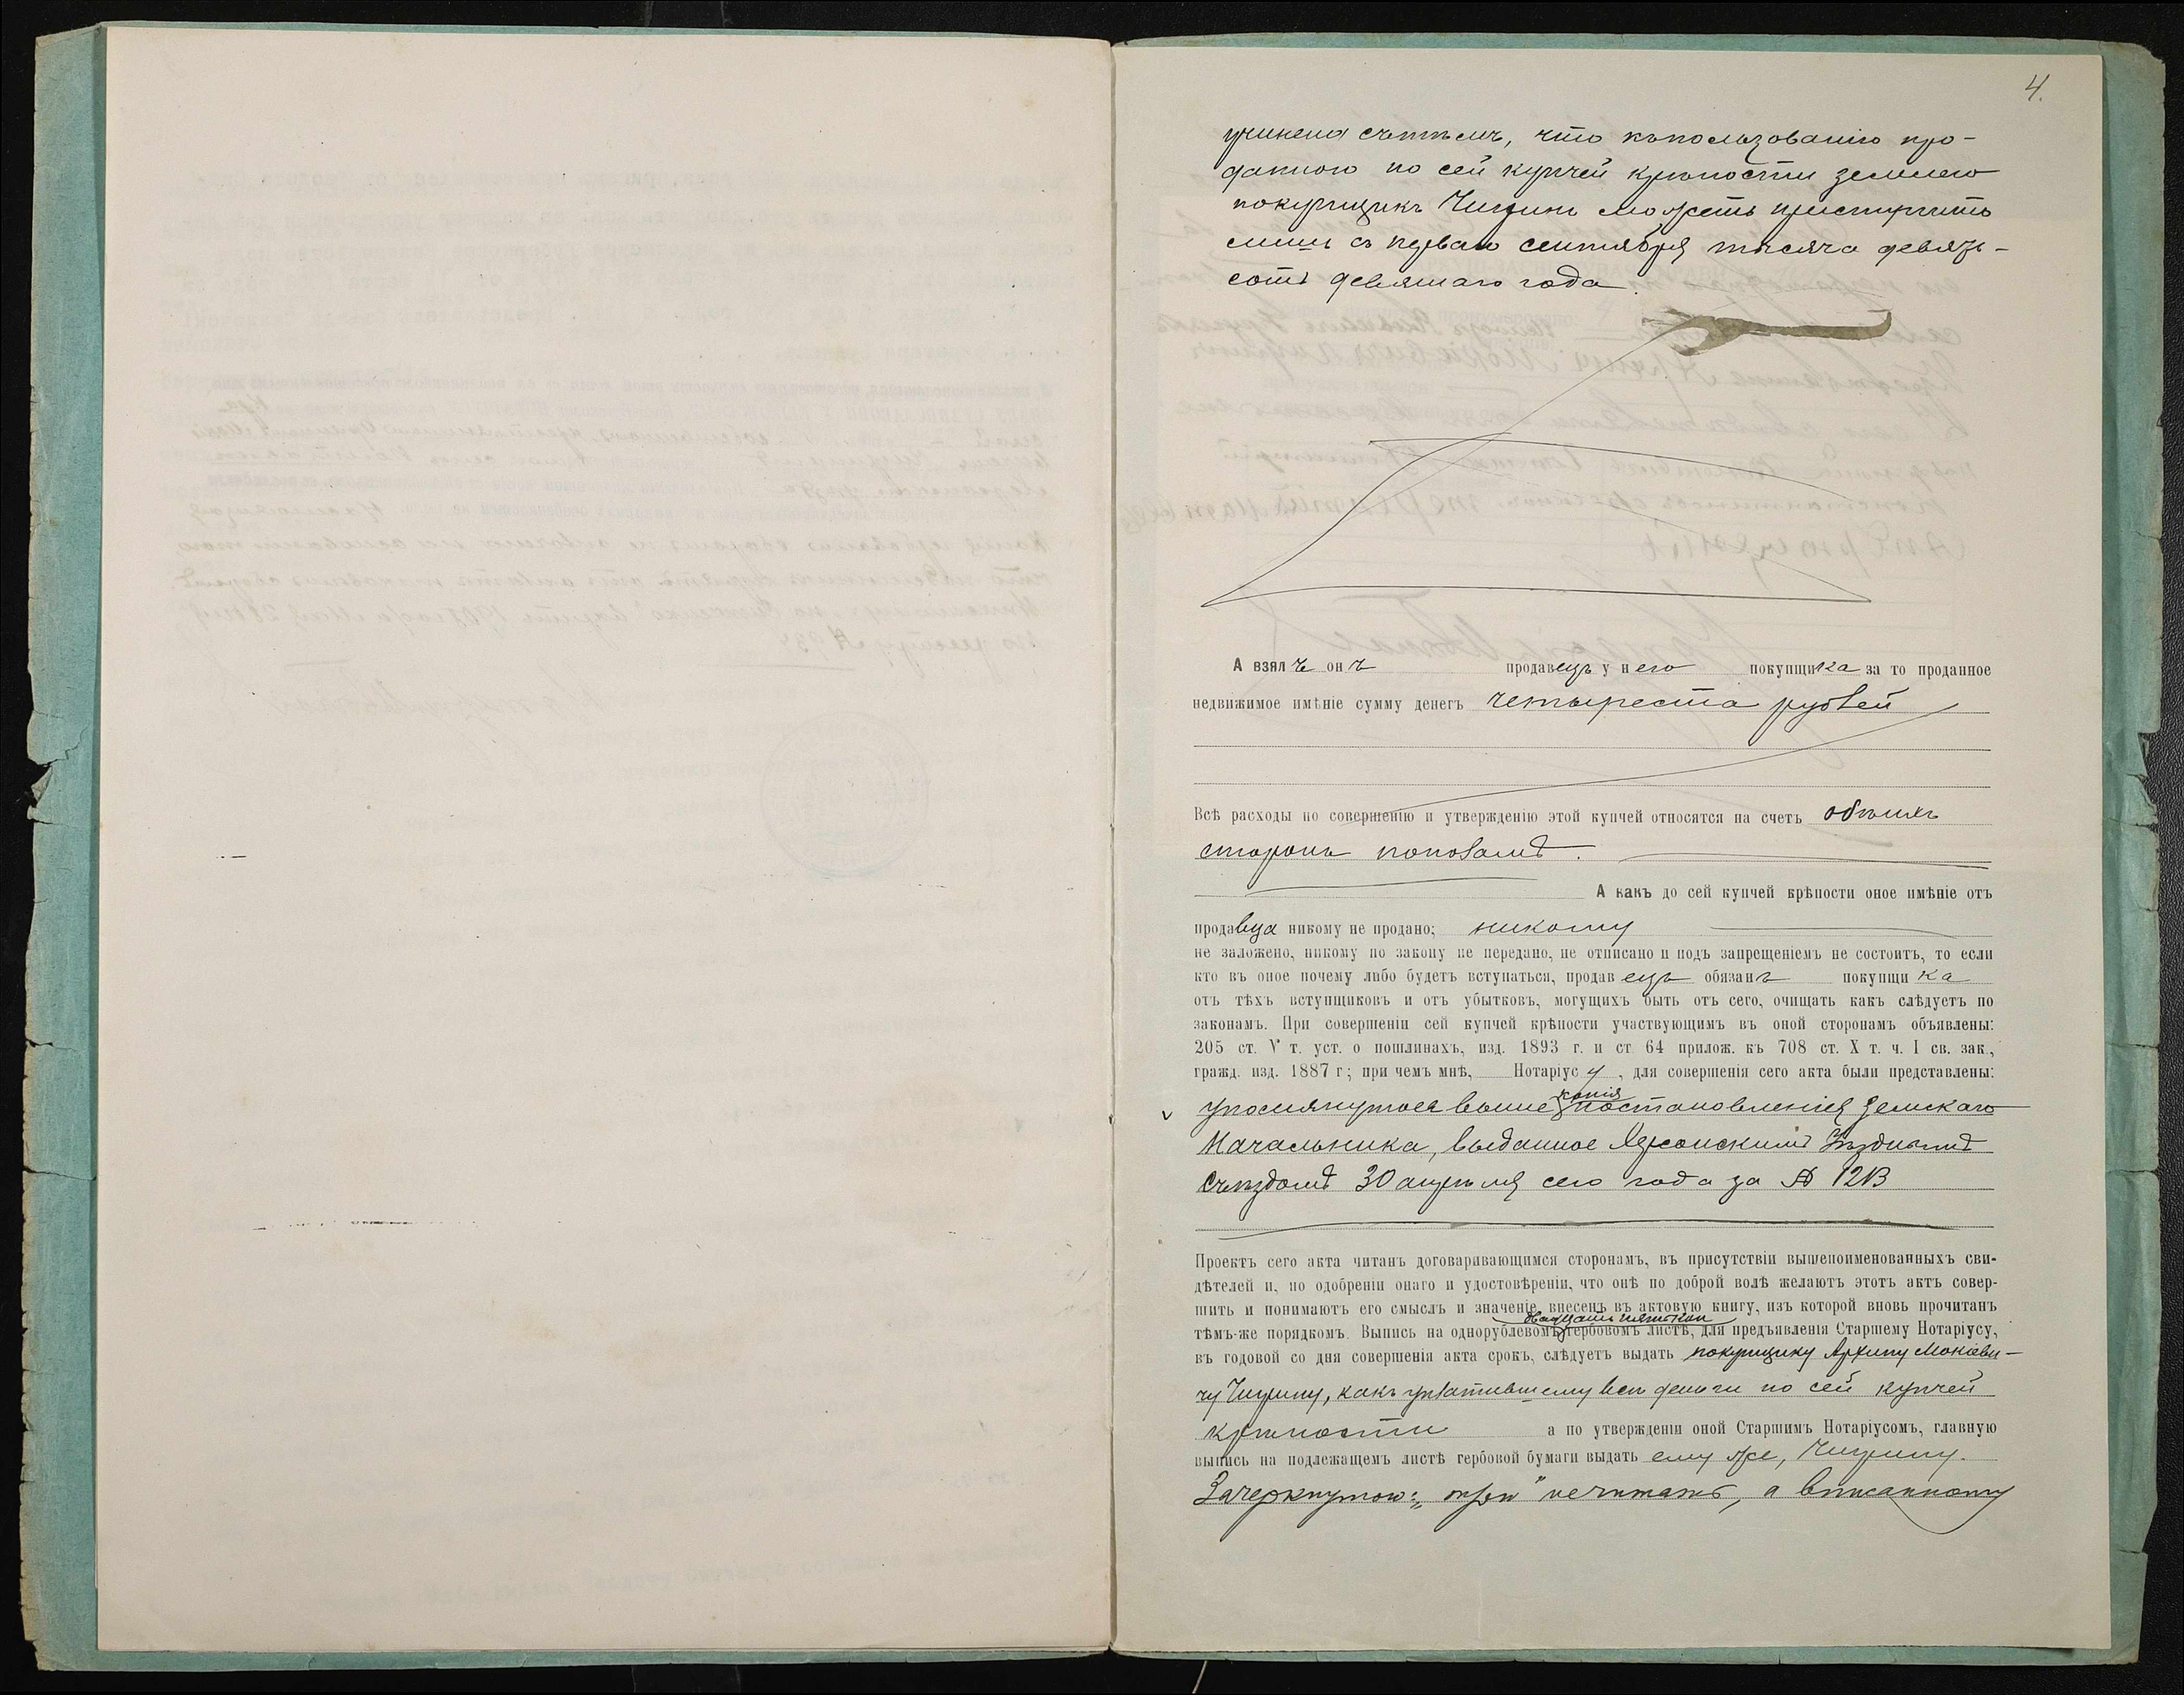 4.
учинена съ тѣмъ, что къ пользованію про-
данною по сей купчей крѣпости землею
покупщикъ Чигринъ можетъ приступить
лишь съ перваго сентября тысяча девять-
сотъ девятаго года.
А взялъ онъ продавецъ у него покупщика за то проданное
недвижимое имѣніе сумму денегъ четыреста рублей
Всѣ расходы по совершенію и утвержденію этой купчей относятся на счетъ обѣихъ
сторонъ пополамъ.
А какъ до сей купчей крѣпости оное имѣніе отъ
продавца никому не продано; никому
не заложено, никому по закону не передано, не отписано и подъ запрещеніемъ не состоитъ, то если
кто въ оное почему либо будетъ вступаться, продавецъ обязанъ покупщика
отъ тѣхъ вступщиковъ и отъ убытковъ, могущихъ быть отъ сего, очищать какъ слѣдуетъ по
законамъ. При совершеніи сей купчей крѣпости участвующимъ въ оной сторонамъ объявлены:
205 ст. V т. уст. о пошлинахъ, изд. 1893 г. и ст. 64 прилож. къ 708 ст. X т. ч. I св. зак.,
гражд. изд. 1887 г; при чемъ мнѣ, Нотаріусу, для совершенія сего акта были представлены:
копія
упомянутая выше постановленія Земскаго
Начальника, выданное Херсонскимъ Уѣзднымъ
Съѣздомъ 30 апрѣля сего года за №
Проектъ сего акта читанъ договаривающимся сторонамъ, въ присутствіи вышепоименованныхъ сви-
дѣтелей и, по одобреніи онаго и удостовѣреніи, что онѣ по доброй волѣ желаютъ этотъ актъ совер-
шить и понимаютъ его смыслъ и значеніе, внесенъ въ актовую книгу, изъ которой вновь прочитанъ
двадцати пяти коп
тѣмъ-же порядкомъ. Выпись на однорублевомъ гербовомъ листѣ, для предъявленія Старшему Нотаріусу,
въ годовой со дня совершенія акта срокъ, слѣдуетъ выдать покупщику Архипу Мокіеви-
чу Чигрину, какъ уплатившему всѣ деньги по сей купчей
крѣпости а по утвержденіи оной Старшимъ Нотаріусомъ, главную
выпись на подлежащемъ листѣ гербовой бумаги выдать ему же, Чигрину.
Зачеркнутое: не читать, а вписанному